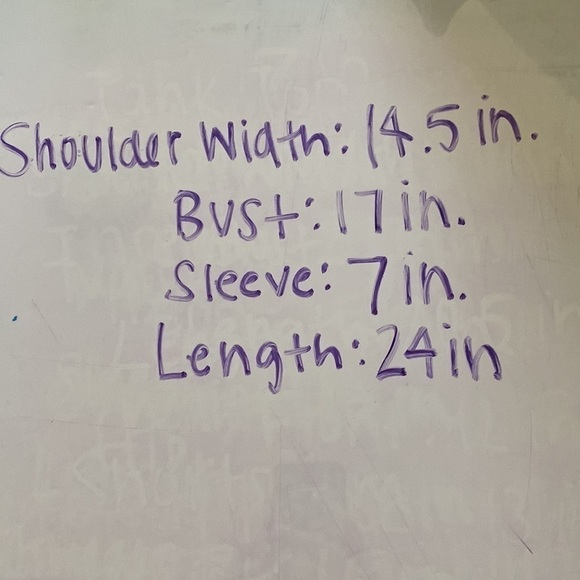 Shoulder Width: 14.5 in.
Bust: 17 in.
Sleeve: 7 in.
Length: 24 in